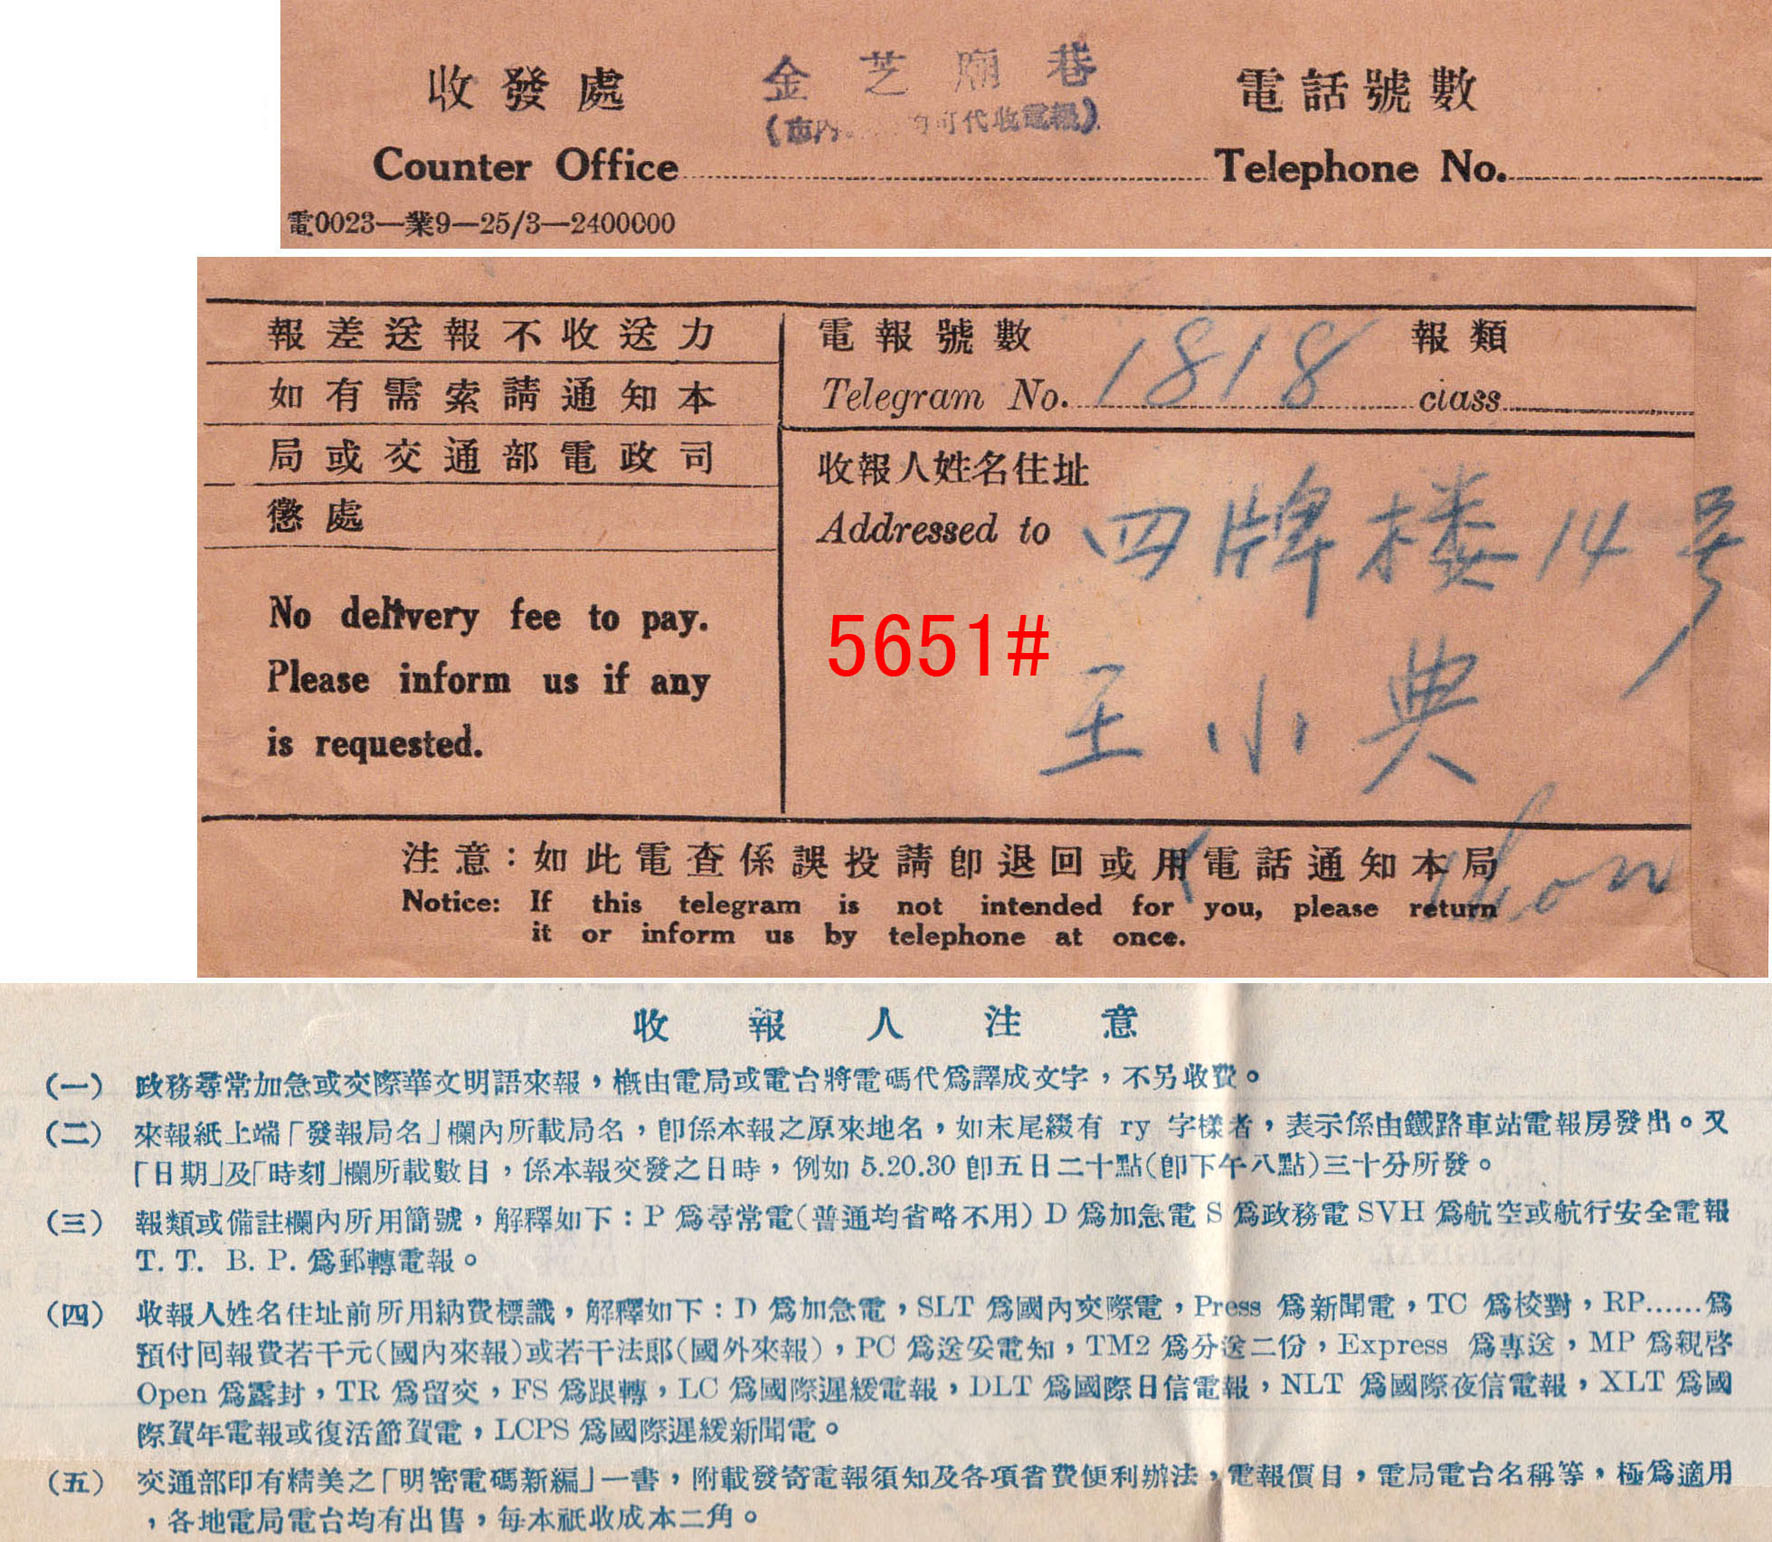 收發處
金芝廟巷
電話號數
(市內 可代收電報)
Counter Office
Telephone No.
電0023—業9—25/3—2400000
報差送報不收送力
如有需索請通知本
局或交通部電政司
懲處
No delivery fee to pay.
Please inform us if any
is requested.
電報號數
1818
報類
Telegram No.
ciass
收報人姓名住址
Addressed to
四牌楼14号
5651#
王小典
注意:如此電查係誤投請卽退回或用電話通知本局
Notice: If this telegram is not intended for you, please return
it or inform us by telephone at once.
收報人注意
(一) 政務尋常加急或交際華文明語來報,概由電局或電台將電碼代爲譯成文字,不另收費。
(二) 來報紙上端「發報局名」欄內所載局名,卽係本報之原來地名,如末尾綴有 ry 字樣者,表示係由鐵路車站電報房發出。又
「日期」及「時刻」欄所載數目,係本報交發之日時,例如 5.20.30 卽五日二十點(卽下午八點)三十分所發。
(三) 報類或備註欄內所用簡號,解釋如下:P 爲尋常電(普通均省略不用) D 爲加急電 S 爲政務電 SVH 爲航空或航行安全電報
T. T. B. P. 爲郵轉電報。
(四) 收報人姓名住址前所用納費標識,解釋如下:D 爲加急電,SLT 爲國內交際電,Press 爲新聞電,TC 爲校對,RP......爲
預付回報費若干元(國內來報)或若干法郎(國外來報),PC 爲送妥電知,TM2 爲分送二份,Express 爲專送,MP 爲親啓
Open 爲露封,TR 爲留交,FS 爲跟轉,LC 爲國際遲緩電報,DLT 爲國際日信電報,NLT 爲國際夜信電報,XLT 爲國
際賀年電報或復活節賀電,LCPS 爲國際遲緩新聞電。
(五) 交通部印有精美之「明密電碼新編」一書,附載發寄電報須知及各項省費便利辦法,電報價目,電局電台名稱等,極爲適用
,各地電局電台均有出售,每本祇收成本二角。